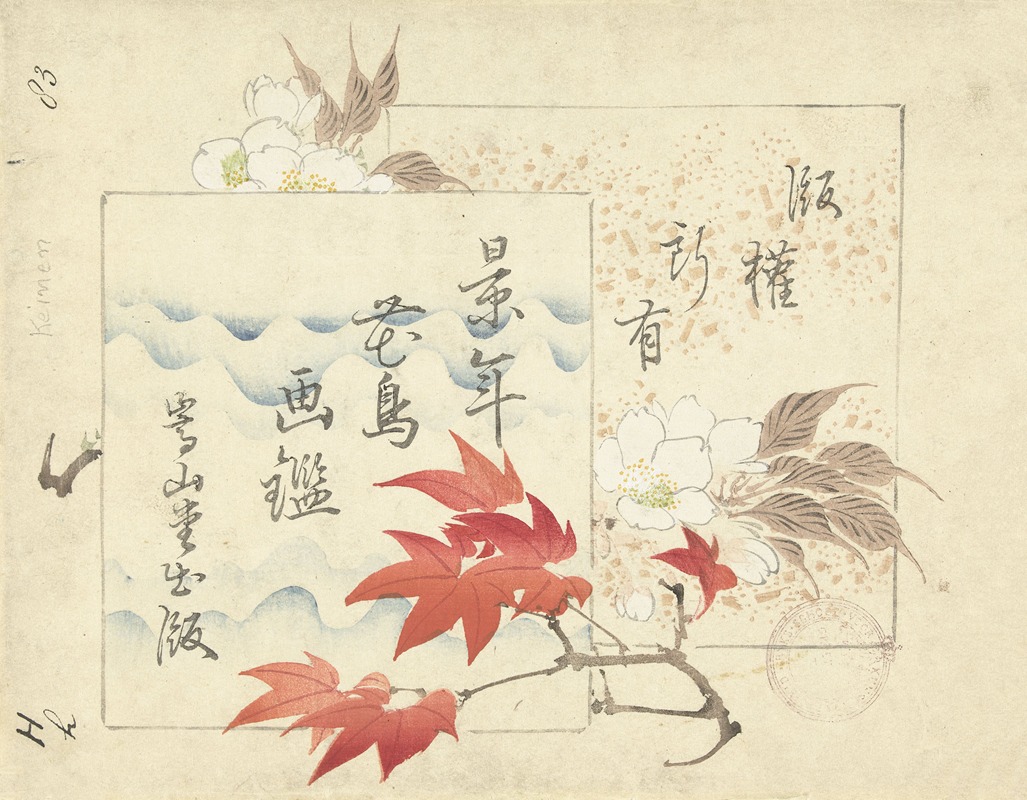 版權
所有
景年
花鳥
画鑑
嵩山堂出版
83
Keimen
H
h